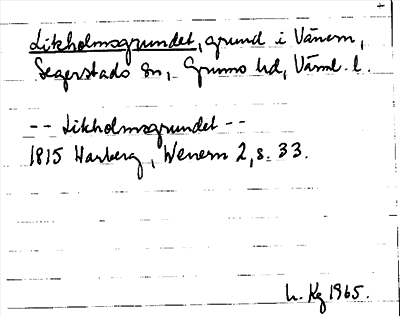 Likholmsgrundet, grund i Vänern,
Segerstads sn, Grums hd, Värml. l.
-- Likholmsgrundet --
1815 Harberg, Wenern 2, s. 33.
L. Kg 1965.